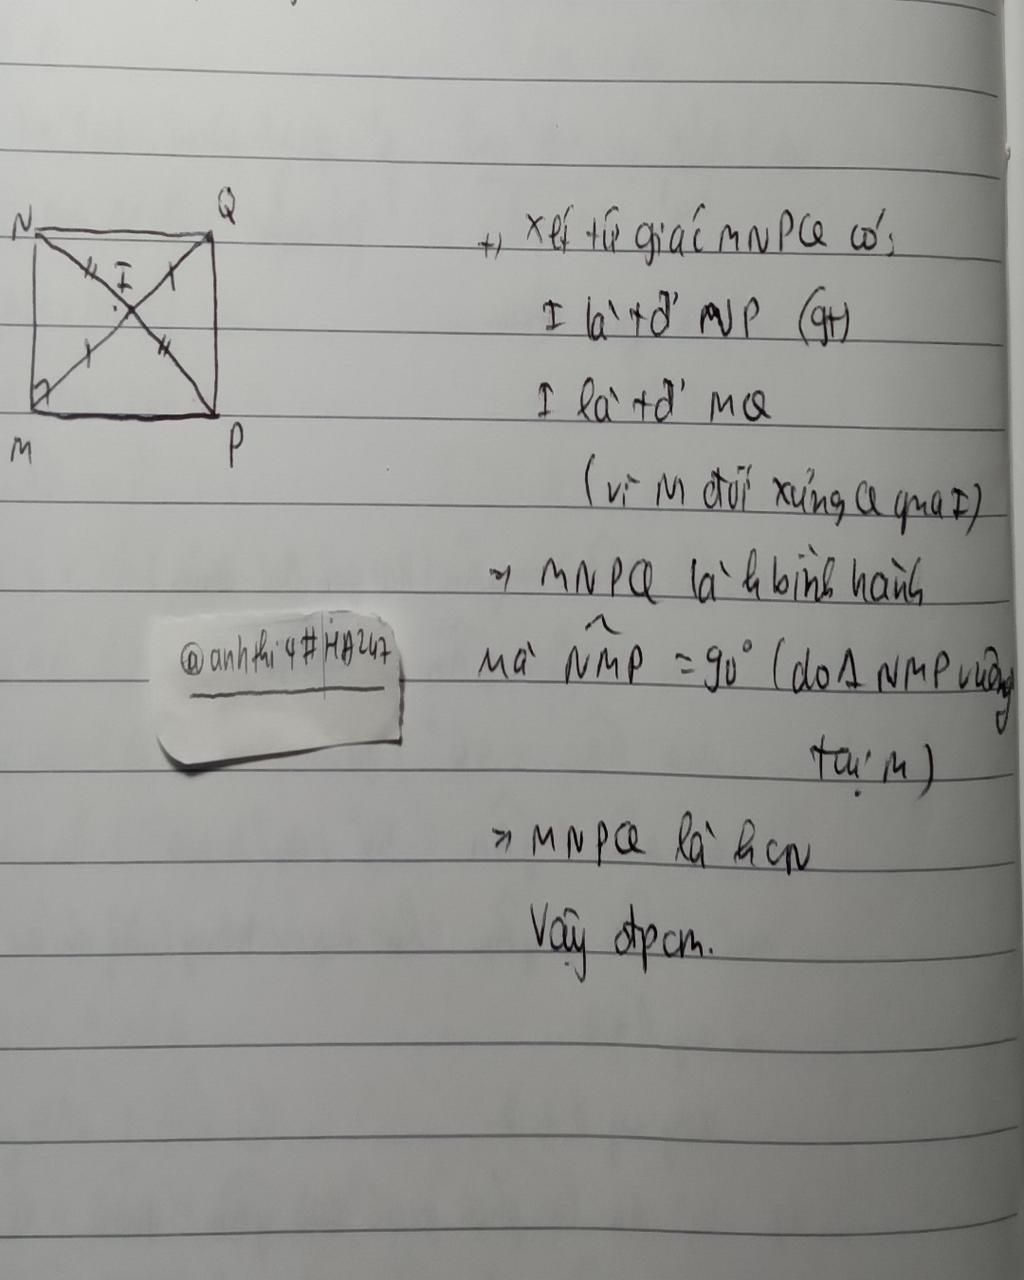 N
Q
I
M
P
+) Xét tứ giác MNPQ có:
I là tđ' NP (gt)
I là tđ' MQ
(vì M đối xứng Q qua I)
=> MNPQ là h bình hành
Mà NMP = 90° (do Δ NMP vuông
tại M)
=> MNPQ là hcn
Vậy đpcm.
@anhthi4#HA247